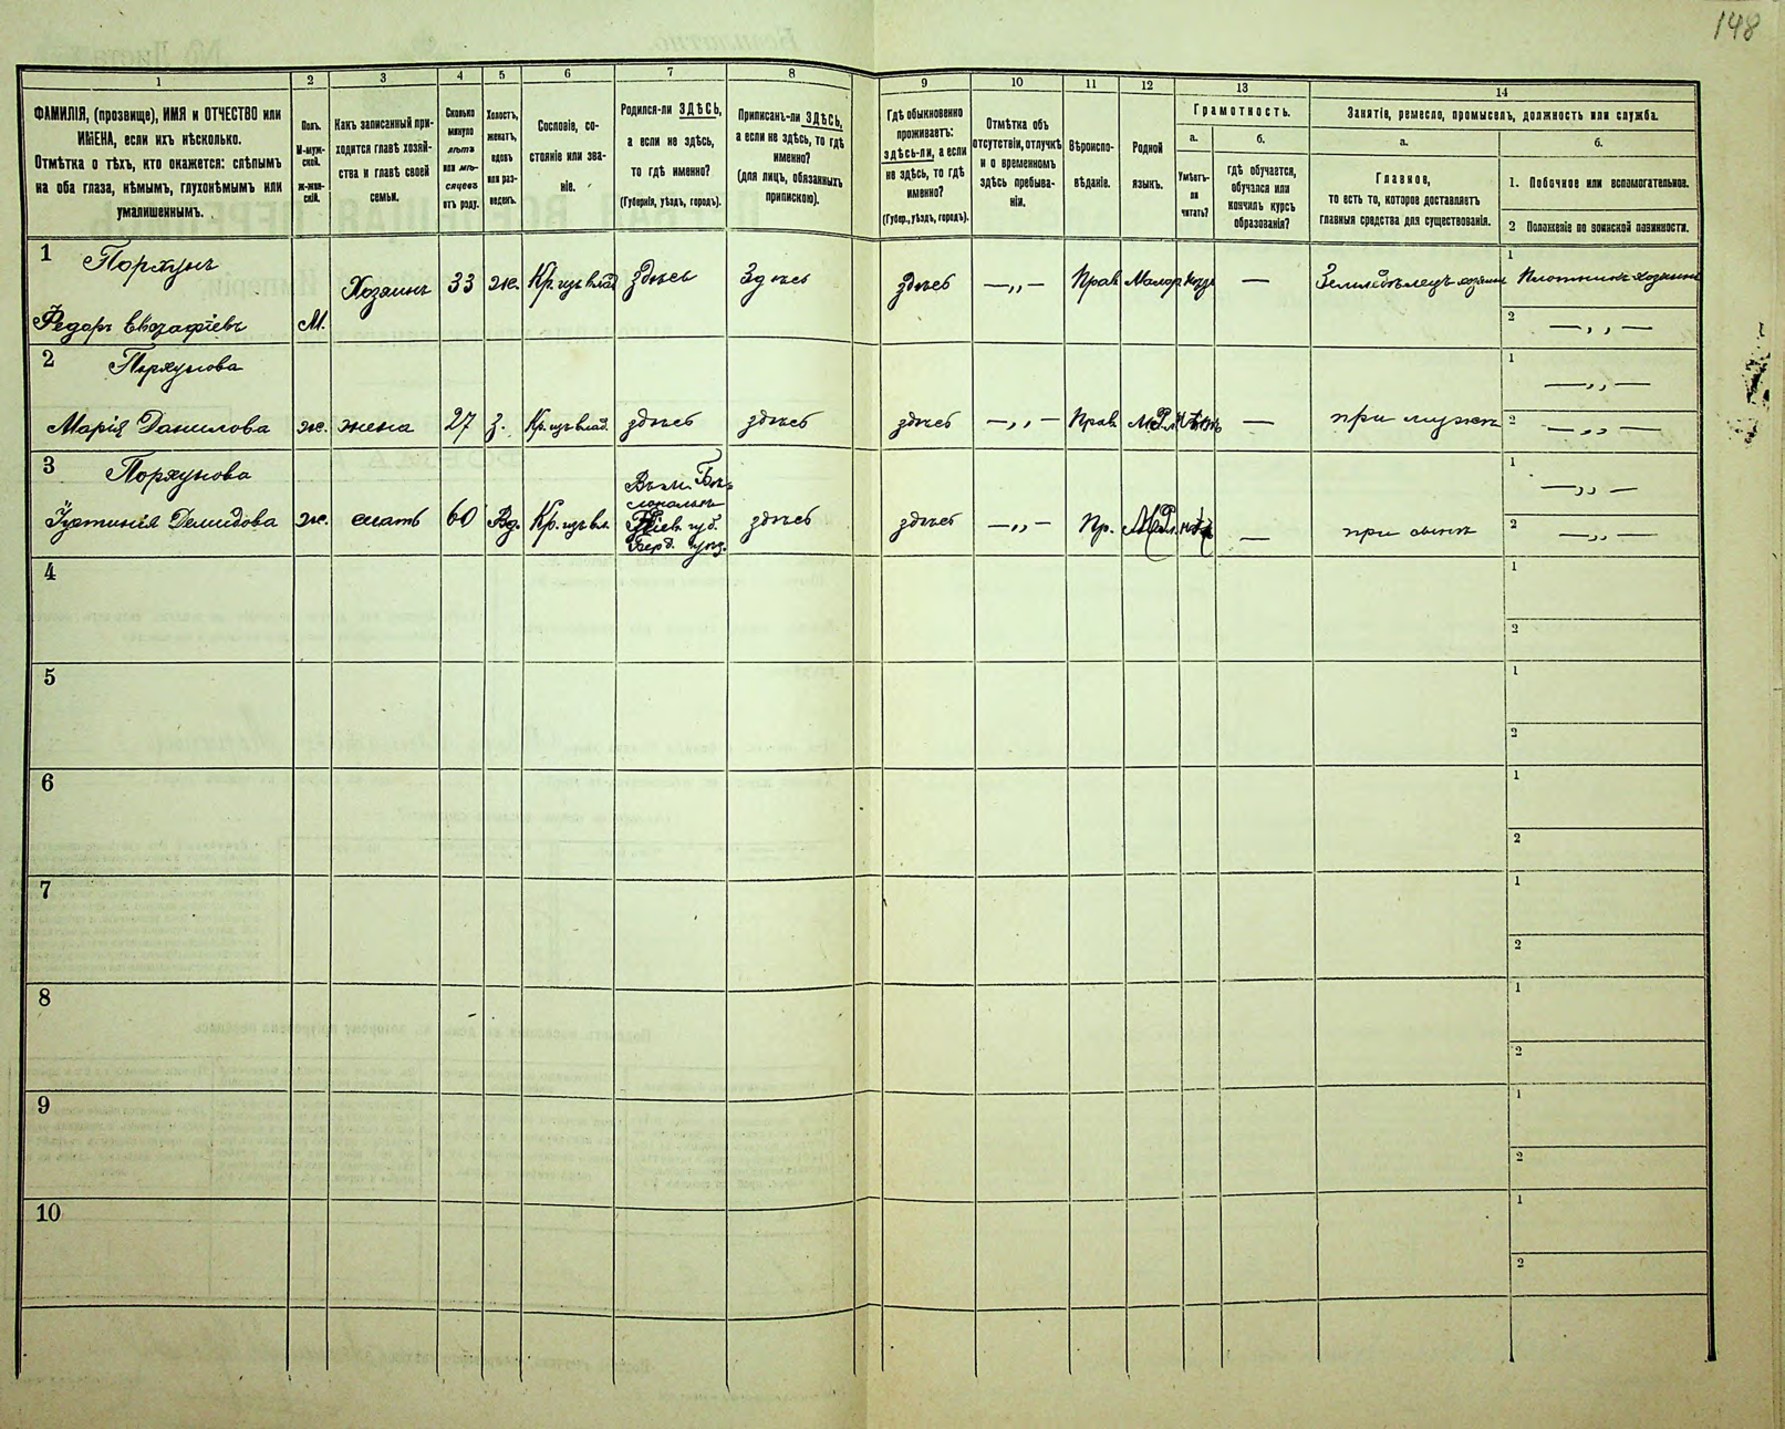 148
1 2 3 4 5 6 7 8 9 10 11 12 13 14
ФАМИЛІЯ, (прозвище), ИМЯ и ОТЧЕСТВО или
ИМЕНА, если ихъ нѣсколько.
Отмѣтка о тѣхъ, кто окажется: слѣпымъ
на оба глаза, нѣмымъ, глухонѣмымъ или
умалишеннымъ.
Полъ.
М-муж-
ской.
Ж-жен-
скій.
Какъ записанный при-
ходится главѣ хозяй-
ства и главѣ своей
семьи.
Сколько
минуло
лѣтъ
или мѣ-
сяцевъ
отъ роду.
Холостъ,
женатъ,
вдовъ
или раз-
веденъ.
Сословіе, со-
стояніе или зва-
ніе.
Родился-ли ЗДѢСЬ,
а если не здѣсь,
то гдѣ именно?
(Губернія, уѣздъ, городъ).
Приписанъ-ли ЗДѢСЬ,
а если не здѣсь, то гдѣ
именно?
(для лицъ, обязанныхъ
припискою).
Гдѣ обыкновенно
проживаетъ:
здѣсь-ли, а если
не здѣсь, то гдѣ
именно?
(Губер., уѣздъ, городъ).
Отмѣтка объ
отсутствіи, отлучкѣ
и о временномъ
здѣсь пребыва-
ніи.
Вѣроиспо-
вѣданіе.
Родной
языкъ.
Грамотность.
а.
Умѣетъ-
ли
читать?
б.
гдѣ обучается,
обучался или
кончилъ курсъ
образованія?
Занятія, ремесло, промыселъ, должность или служба.
а.
Главное,
то есть то, которое доставляетъ
главныя средства для существованія.
б.
1. Побочное или вспомогательное.
2 Положеніе по воинской повинности.
1 Порхунъ
Федаръ М. Хозяинъ 33 ж. Кр. изъ влад здѣсь Здѣсь здѣсь —„— Прав Малор — Земледѣлецъ хозяинъ 1 Плотникъ хозяинъ
2 —„—
2 Порхунова
1 —„—
Марія Данилова ж. жена 27 з. Кр. изъ влад. здѣсь здѣсь здѣсь —„— Прав нѣтъ — при мужѣ 2 —„—
3 Порхунова
1 —„—
Устинія Демидова ж. мать 60 Вд. Кр. изъ вл. Кіев. губ. Берд. уѣз. здѣсь здѣсь —„— Пр. — при сынѣ 2 —„—
4 1
2
5 1
2
6 1
2
7 1
2
8 1
2
9 1
2
10 1
2